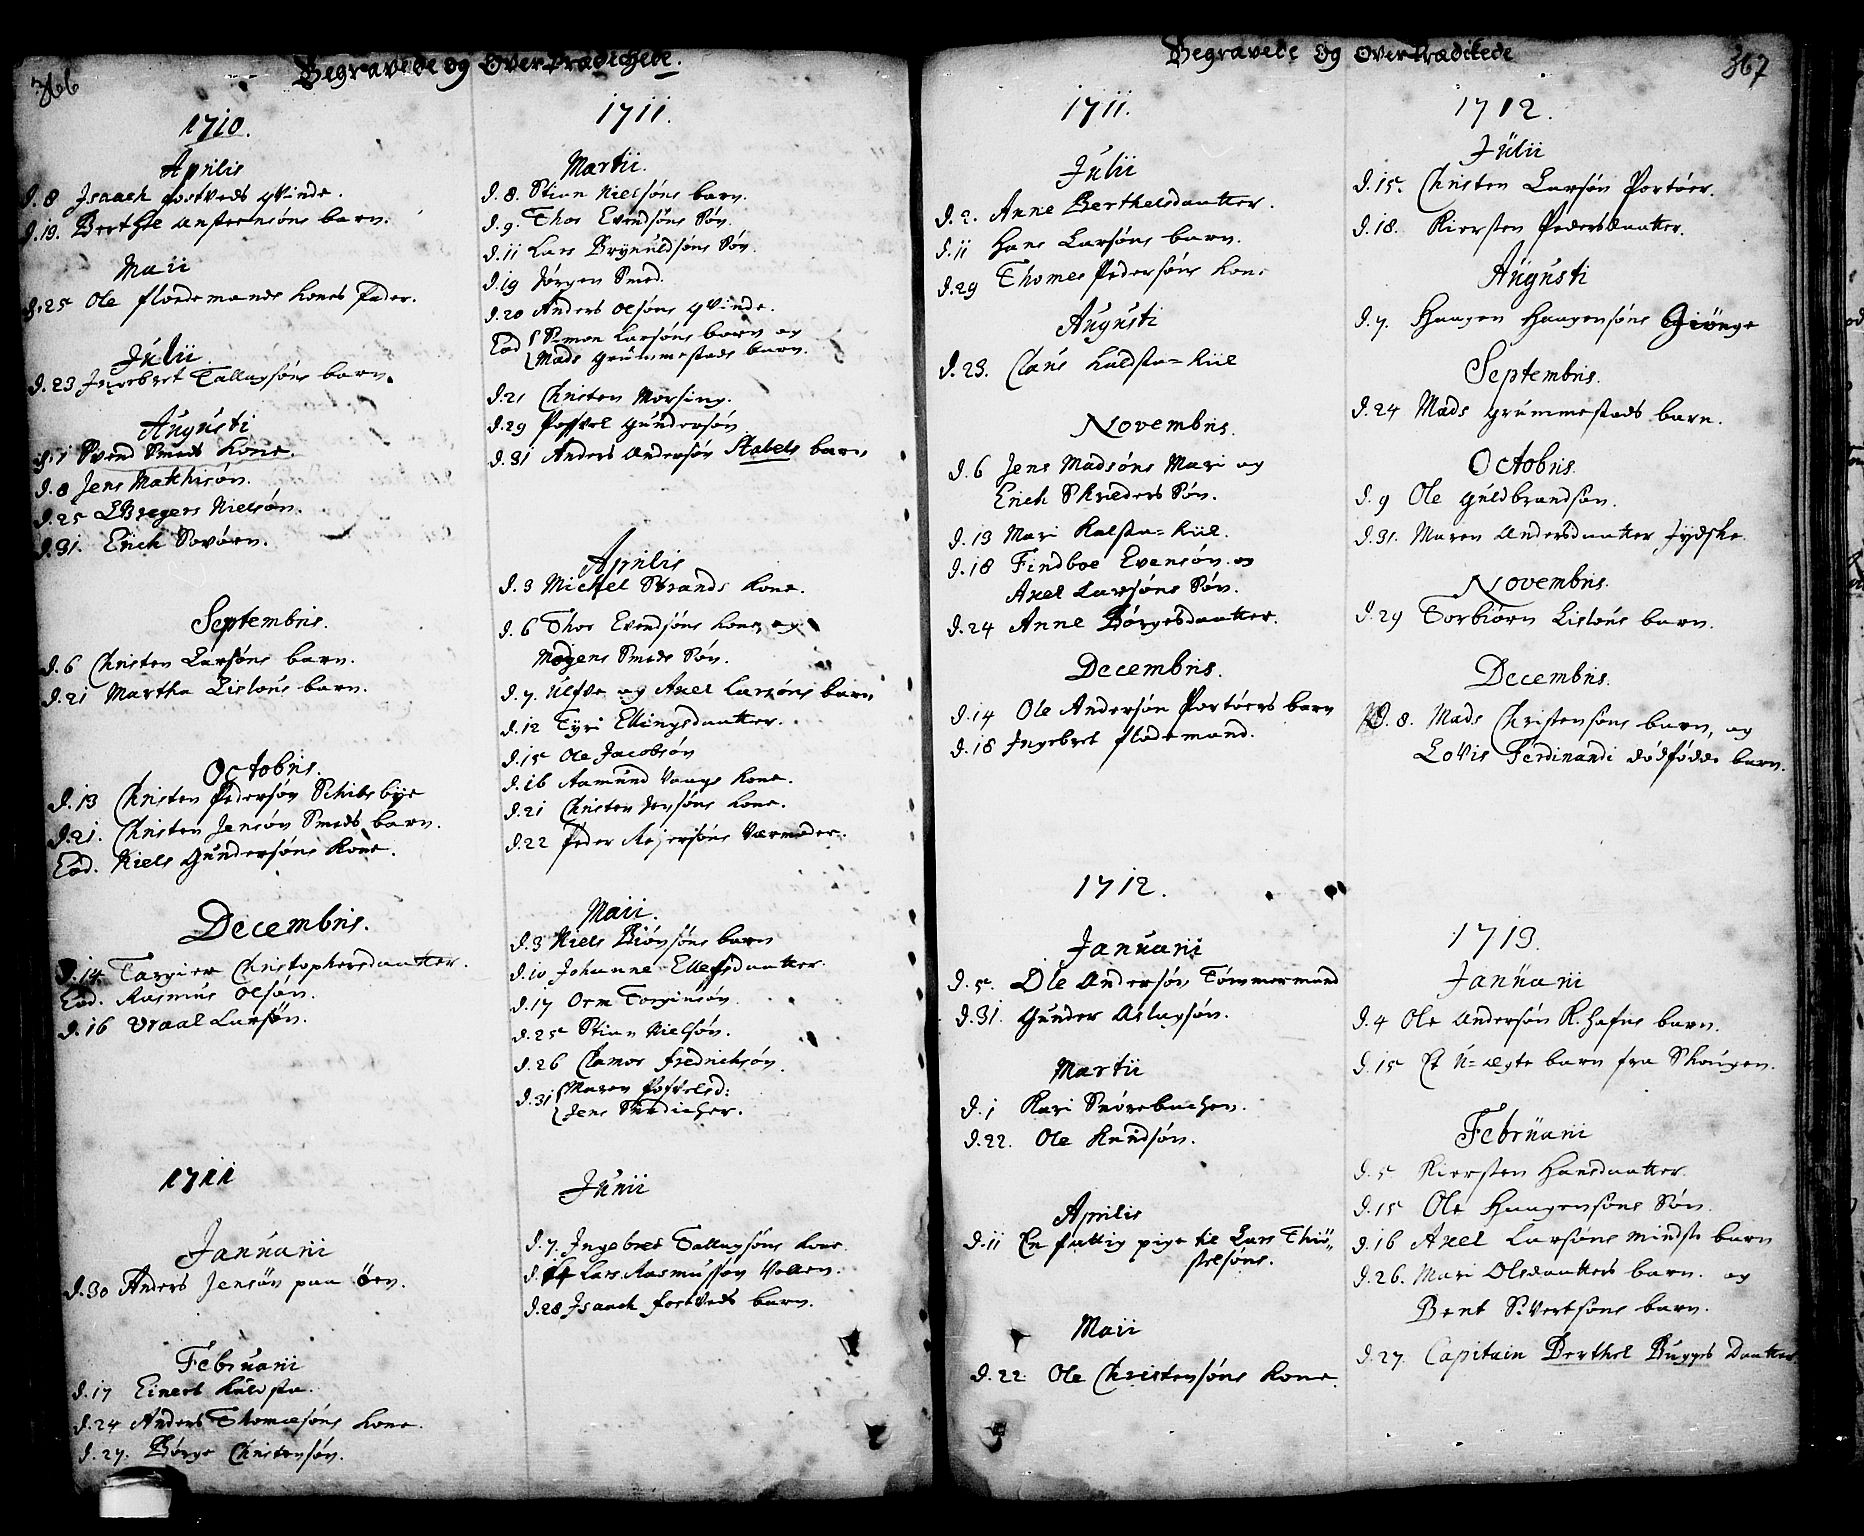 366
Begravede og Over Prædichede.
1710.
Aprilis
d. 8 Isaach fostveds qvinde.
d. 19. Berthle Anstensøns barn.
Maii
d. 25 Ole flodemands kones fader.
Julii
d. 23 Ingebret Tallagsøns barn.
Augusti
d. 7 Svend Smeds Kone.
d. 8 Jens Mathisøn.
d. 25 Bregers Nielsøn.
d. 31. Erich Sovørn.
Septembris.
d. 6 Christen Larsøns barn.
d. 21 Martha Lisløus barn.
Octobris.
d. 13 Christen Pedersøn Schibsbye
d. 21. Christen Jensøn Smeds barn.
Eod. Niels Gundersøns Kone.
Decembris.
d. 14. Targier Christophersdaatter.
Eod. Rasmus Olsøn.
d. 16 Vraal Larsøn.
1711
Januarii
d. 30 Anders Jensøn paa Øen.
Februarii
d. 17 Einert Kulsta.
d. 24 Anders Thomesøns Kone.
d. 27. Børge Christensøn.
1711.
Martii.
d. 8. Stian Nielsøns barn.
d. 9. Thor Evensøns Søn.
d. 11 Lars Brynildsøns Søn.
d. 19 Jørgen Smed.
d. 20 Anders Olsøns qvinde.
Eod Simon Larsøns barn og
Mads Grummestads barn.
d. 21 Christen Morsing.
d. 29 Possvel Gundersøn
d. 31 Anders Andersøn Stabels barn
Aprilis
d. 3 Michel Strands Kone.
d. 6 Thor Evensøns kone og
Mogens Smeds Søn.
d. 7. Ulfve og Axel Larsøns barn
d. 12 Tyri Ellingsdaatter.
d. 15 Ole Jacobsøn
d. 16 Aamund Vaags Kone.
d. 21 Christen Jensøns Kone.
d. 22 Peder Rejersøns Værmoder.
Maii.
d. 3 Niels Biønsøns barn
d. 10 Johanne Ellefsdaatter.
d. 17 Orm Torginsøn.
d. 25 Stian Nielsøn.
d. 26 Clamor fredrichsøn
d. 31 Maren Possvelsd:
Jens Snedicher.
Junii
d. 7. Ingebret Tallagsøns Kone.
d. 14 Lars Rasmussøn Vollen.
d. 28 Isaach fostveds barn.
Begravede og Over Prædikede
367
1711.
Julii
d. 2. Anne Berthelsdaatter.
d. 11 Hans Larsøns barn.
d. 29 Thomes Pedersøns Kone
Augusti
d. 23. Claus Kulsta=Kiil
Novembris.
d. 6 Jens Madsøns Mari og
Erich Skreders Søn.
d. 13 Mari Kalsta=Kiil.
d. 18 Findboe Evensøn og
Axel Larsøns Søn.
d. 24 Anne Børgesdaatter.
Decembris.
d. 14 Ole Andersøn Portøers barn
d. 18 Ingebret flodemand.
1712.
Januarii
d. 5. Ole Andersøn Tømmermand
d. 31. Gunder Aslagsøn.
Martii
d. 1 Kari Snørebachen.
d. 22. Ole Knudsøn.
Aprilis
d. 11 En fattig pige til Lars Thiø-
stelsøns.
Maii
d. 22. Ole Christensøns Kone.
1712.
Julii
d. 15. Christen Larsøn Portøer.
d. 18. Kiersten Pedersdaatter.
Augusti
d. 7. Haagen Haagensøns Giönge
Septembris.
d. 24 Mads Grummestads barn.
Octobris.
d. 9 Ole Guldbrandsøn.
d. 31. Maren Andersdaatter Jydske.
Novembris.
d. 29 Torbiørn Lisløus barn.
Decembris.
d. 8. Mads Christensøns barn, og
Lovis Ferdinandi dødfødde barn.
1713.
Januarii
d. 4 Ole Andersøn R. Hafns barn.
d. 15 Et U=ægte barn fra Skougen.
Februarii
d. 5 Kiersten Hansdaatter.
d. 15 Ole Haagensøns Søn.
d. 16 Axel Larsøns mindste barn
d. 26. Mari Olsdaatters barn. og
Bent Sivertsøns barn.
d. 27. Capitain Berthel Bugges Daatter